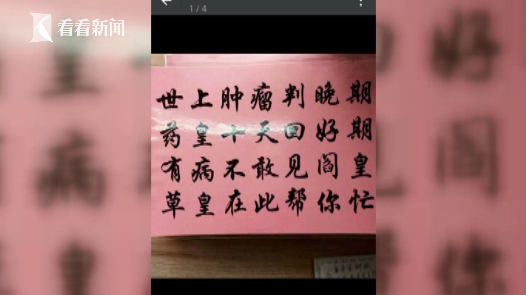 看看新闻
1/4
世上肿瘤判晚期
药皇十天回好期
有病不敢见阎皇
草皇在此帮你忙